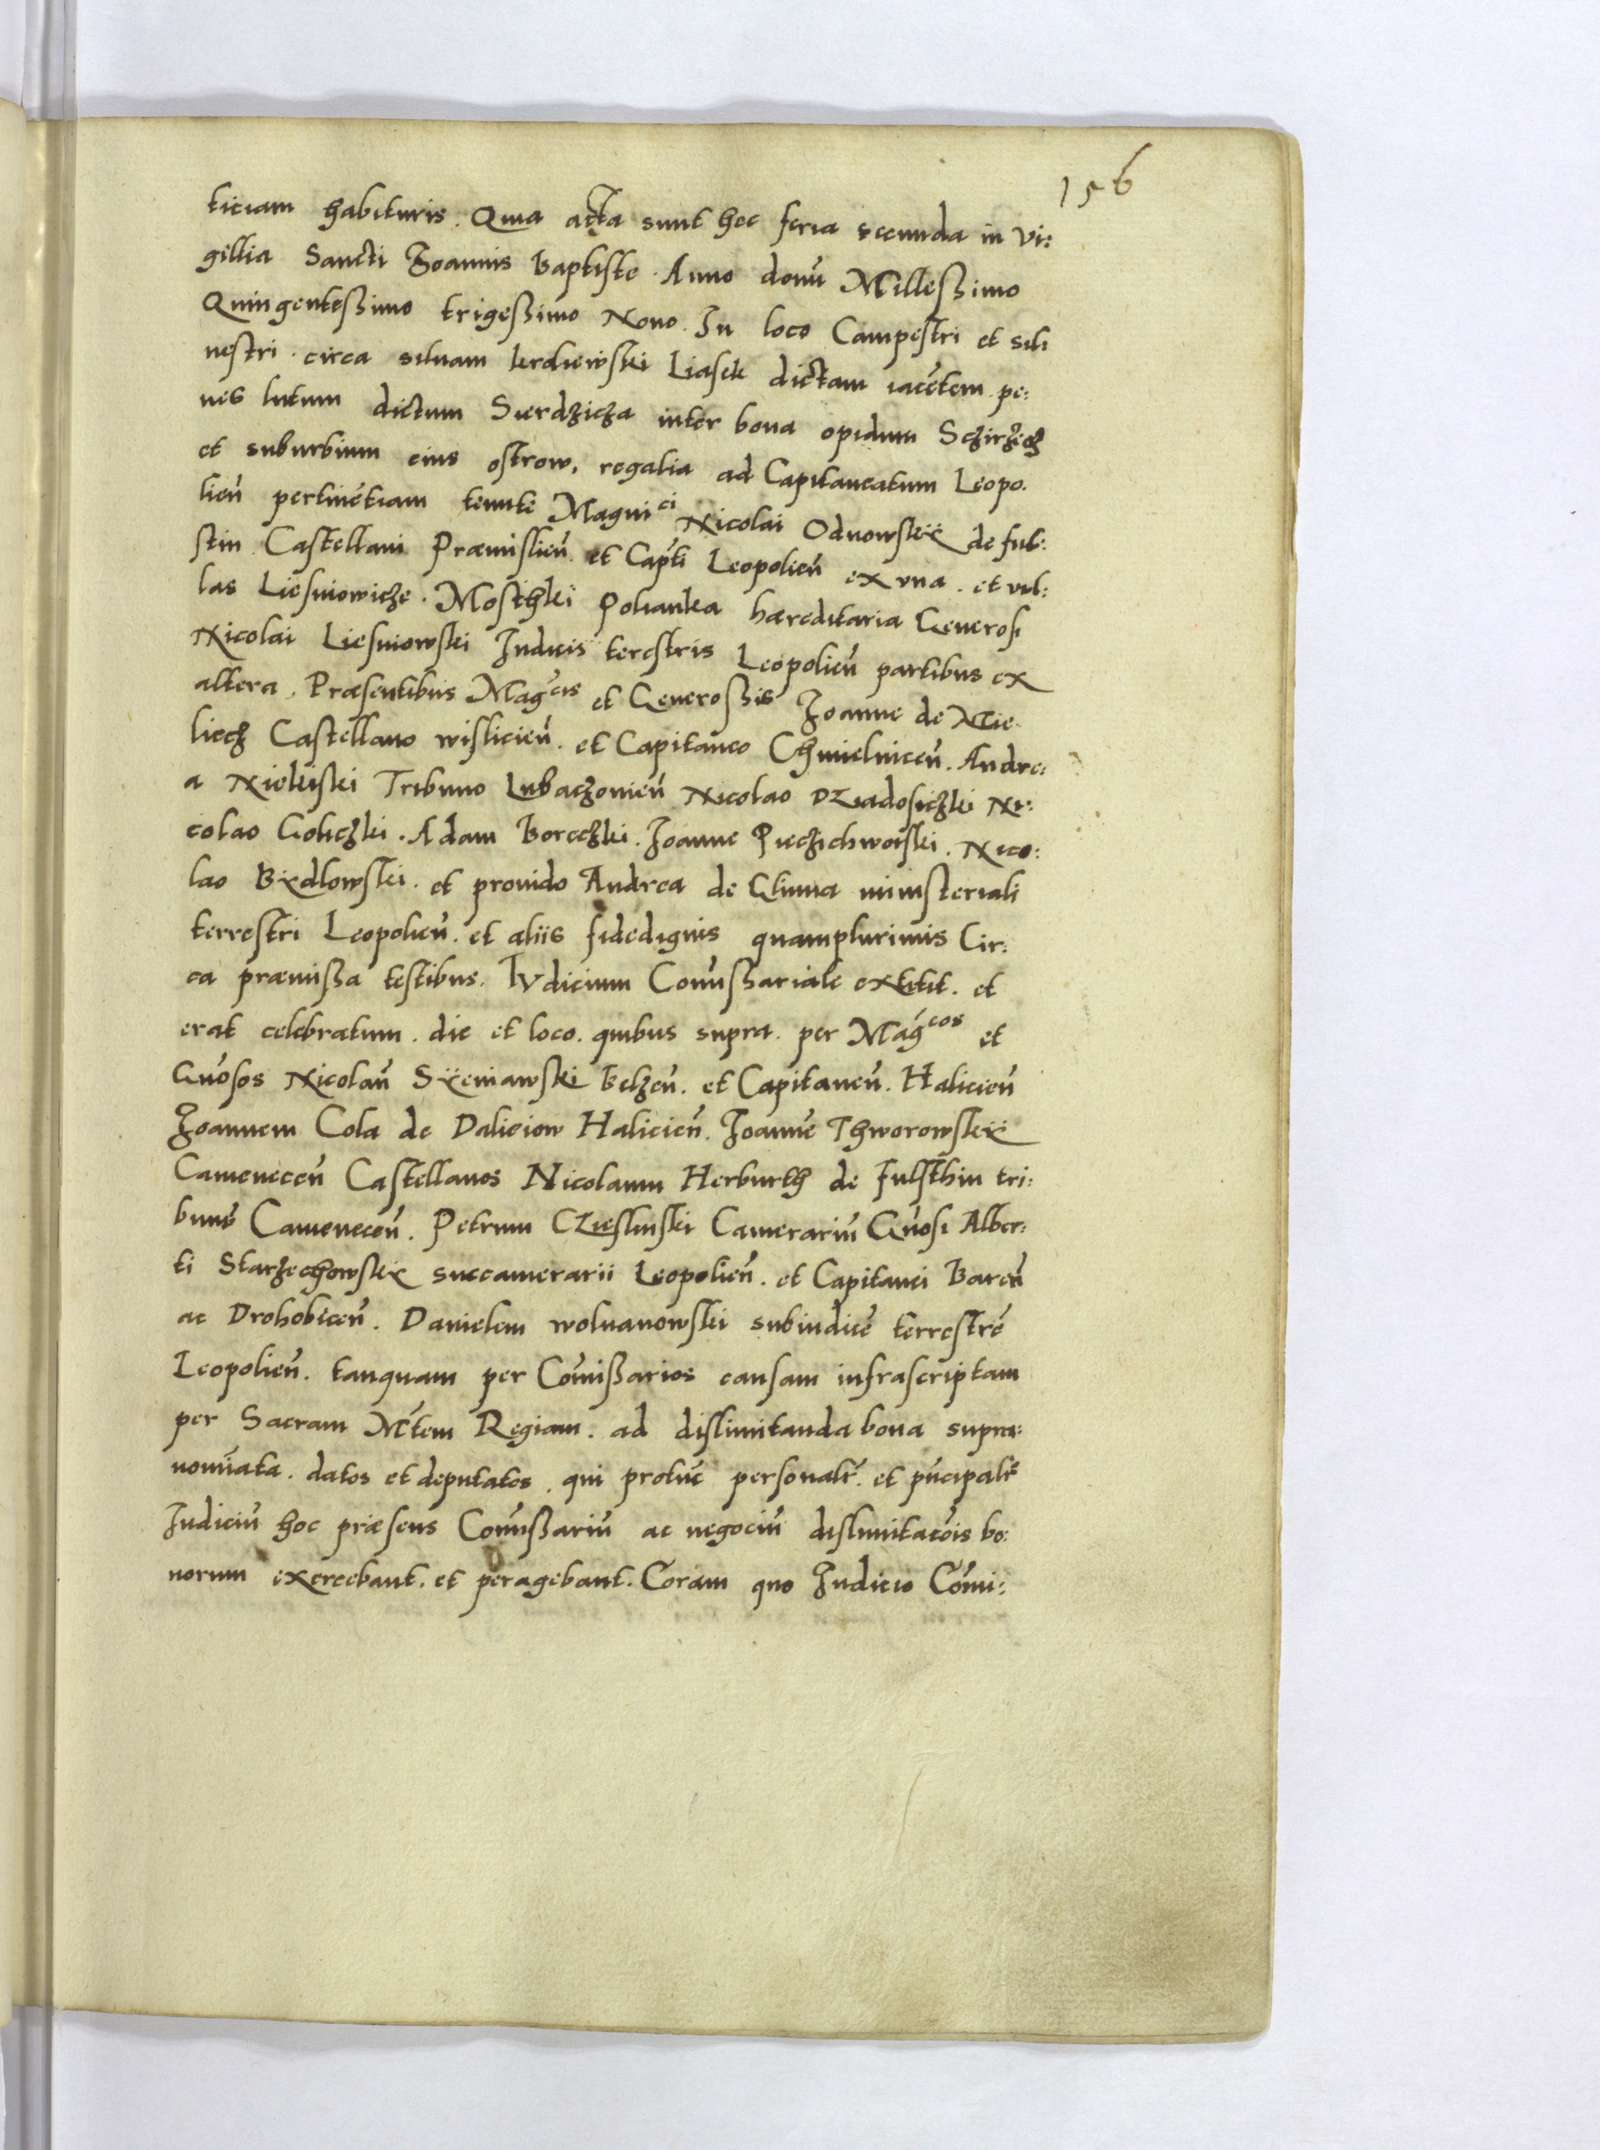 156
ticiam habituris. Quia acta sunt hec feria secunda in vi:
gillia Sancti Joannis Baptiste. Anno domī Milleßimo
Quingenteßimo trigeßimo Nono. In loco Campestri et silu
nestri. circa siluam lerdiewskī Liasek dictam iacētem pe:
nes lutum dictum Sierdzicza inter bona opidum Sczirzecz
et suburbium eius ostrow, regalia ad Capitaneatum Leopo.
lieñ pertinētiam tenute Magnici Nicolai Odnowskÿ de ful:
stin Castellani Præmislieñ. et Capti Leopolieñ ex vna. et vil:
las Liesniowicze. Mosthki Polianka hæreditaria Generosi
Nicolai Liesniowski Judicis terestris Leopolieñ partibus ex
altera. Præsentibus Magcis et Generoßis Joanne de Mie.
liecz Castellano wislicieñ. et Capitaneo Chmielniceñ. Andre:
a Tribuno Lubaczonieñ Nicolao Dziadosiczki Ni:
colao Goliczki. Adam Boreczki. Joanne Nico:
lao Bÿdlowski. et prouido Andrea de Glinna ministeriali
terrestri Leopolieñ. et aliis fidedignis quamplurimis Cir:
ca præmißa testibus. Iudicium Comißariale extitit. et
erat celebratum. die et loco. quibus supra. per Magcos et
Gñosos Nicolaū Sÿeniawski Belzeñ. et Capitaneū. Halicieñ
Joannem Cola de Dalieiow Halicieñ. Joannē Thworowskÿ
Cameneceñ Castellanos Nicolaum Herburth de Fulsthin tri:
bunū Cameneceñ. Petrum Czieslinski Camerariū Gñosi Alber:
ti Starzechowskÿ succamerarii Leopolieñ. et Capitanei Bareñ
ac Drohobiceñ. Danielem woluanowski subiudicē terrestrē
Leopolieñ. tanquam per Comißarios causam infrascriptam
per Sacram Mtem Regiam. ad dislimitanda bona supra:
nomīata. datos et deputatos. qui protūc personaltr. et pñcipaltr
Iudiciū hoc præsens Comißariū ac negociū dislimitacōis bo:
norum exercebant. et peragebant. Coram quo Iudicio Comi: